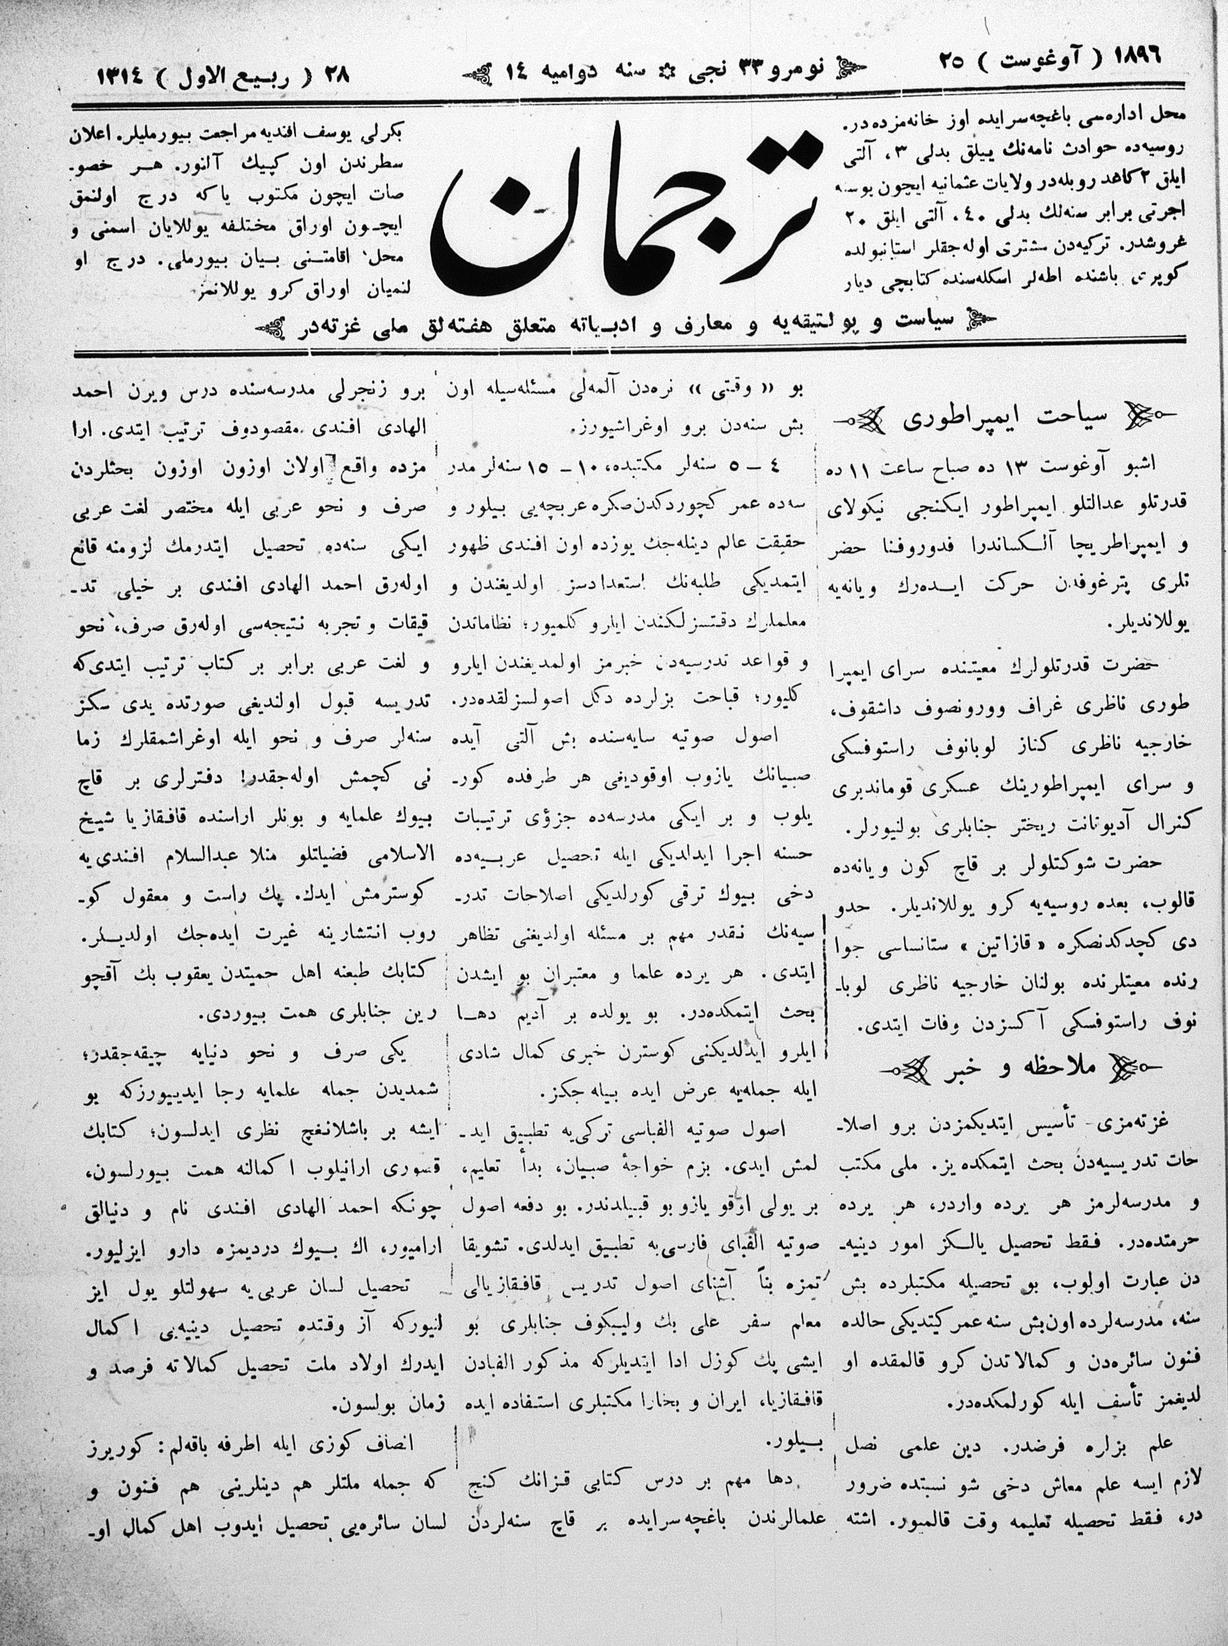 ١٨٩٦ ( آوغوست ) ٢٥
نومرو ٣٣ نجی ✡ سنه دوامیه ١٤
٢٨ ( ربیع الاول ) ١٣١٤
محل اداره‌سی باغچه‌سرایده اوز خانه‌مزده‌در.
روسیه‌ده حوادث نامه‌نك ییللق بدلی ٣، آلتی
ایلق ٢ کاغد روبله‌در ولایات عثمانیه ایچون پوسته
اجرتی برابر سنه‌لك بدلی ٤٠، آلتی ایلق ٢٠
غروشدر. ترکیه‌دن مشتری اوله‌جقلر استانبولده
کوپری باشنده اطه‌لر اسکله‌سنده کتابچی دیار
ترجمان
بکرلی یوسف افندیه مراجعت بیورملیلر. اعلان
سطرندن اون کپیك آلنور. هـر خصو-
صات ایچون مکتوب یا که درج اولنمق
ایچـون اوراق مختلفه یوللایان اسمنی و
محل اقامتـنی بـیان بیورملی. درج او
لنمیان اوراق کرو یوللانمز.
سیاست و پولتیقه‌یه و معارف و ادبـیاته متعلق هفته‌لق ملی غزته‌در
سیاحت ایمپراطوری
اشبو آوغوست ١٣ ده صباح ساعت ١١ ده
قدرتلو عدالتلو ایمپراطور ایکنجی نیکولای
و ایمپراطریچا آلـکساندرا فدوروفنا حضر
تلری پترغوفدن حرکت ایـده‌رك ویانه‌یه
یوللاندیلر.
حضرت قدرتلولرك معیتنده سرای ایمپرا
طوری ناظری غراف وورونصوف داشقوف،
خارجیه ناظری کناز لوبانوف راستوفسکی
و سرای ایمپراطورینك عسکری قوماندیری
کنرال آدیوتانت ریختر جنابلری بولنیورلر.
حضرت شوکتلولر بر قاچ کون ویانه‌ده
قالوب، بعده روسیه‌یه کرو یوللاندیلر. حدو
دی کچدکدنصکره «قازاتین» ستانساسی جوا
رنده معیتلرنده بولنان خارجیه ناظری لوبا-
نوف راستوفسکی آکسزدن وفات ایتدی.
ملاحظه و خبر
غزته‌مزی تأسیس ایتدیکمزدن برو اصلا-
حات تدریسیه‌دن بحث ایتمکده‌یز. ملی مکتب
و مدرسه‌لرمز هر یرده واردر، هر یرده
حرمتده‌در. فـقط تحصیل یالـکز امور دینیه-
دن عبارت اولوب، بو تحصیله مکتبلرده بش
سنه، مدرسه‌لرده اون‌بش سنه عمر کیتدیکی حالده
فنون سائره‌دن و کمالاتدن کرو قالمقده او
لدیغمز تأسف ایله کورلمکده‌در.
علم بزلاره فرضدر. دین علمی نصل
لازم ایسه علم معاش دخی شو نسبتده ضرور
در، فـقط تحصیله تعلیمه وقت قالمیور. اشته
بو «وقتی» نره‌دن آلمه‌لی مسئله‌سیله اون
بش سنه‌دن برو اوغراشیورز.
٤ – ٥ سنه‌لر مکتبده، ١٠ – ١٥ سنه‌لر مدر
سه‌ده عمر کچوردکدن صکره عربچه‌یی بیلور و
حقیقت عالم دینله‌جك یوزده اون افندی ظهور
ایتمدیکی طلبه‌نك استعدادسز اولدیغندن و
معلملرك دقتسزلکندن ایلرو کلمیور؛ نظاماندن
و قواعد تدریسیه‌دن خبرمز اولمدیغندن ایلرو
کلیور؛ قباحت بزلرده دکل اصولسزلقده‌در.
اصول صوتیه سایه‌سنده بش آلتی آیده
صبیانك یازوب اوقودیغی هر طرفده کور-
یلوب و بر ایکی مدرسه‌ده جزؤی ترتیبات
حسنه اجرا ایدلدیکی ایله تحصیل عربـیه‌ده
دخی بـیوك ترقی کورلدیکی اصلاحات تدر-
سیه‌نك نـقدر مهم بر مسئله اولدیغنی تظاهر
ایتدی. هر یرده علما و معتبران بو ایشدن
بحث ایتمکده‌در. بو یولده بر آدیم دهـا
ایلرو ایدلدیکنی کوسترن خبری کمال شادی
ایله جمله‌یه عرض ایده بیله جکز.
اصول صوتیه الفباسی ترکی‌یه تطبـیق اید-
لمش ایدی. بزم خواجهٔ صبیان، بدأ تعلیم،
بر یولی اوقو یازو بو قبیلدندر. بو دفعه اصول
صوتیه الفبای فارسی‌یه تطبیق ایدلدی. تشویقا
تمزه بناً آشنای اصول تدریس قافـقازیالی
معلم سفر علی بك ولیبکوف جنابلری بو
ایشی پك کوزل ادا ایتدیلرکه مذکور الفبادن
قافـقازیا، ایران و بخارا مکتبلری استفاده ایده
بـیلور.
دها مهم بر درس کتابی قـزانك کنج
علمالرندن باغچه‌سرایده بر قاچ سنه‌لردن
برو زنجرلی مدرسه‌سنده درس ویرن احمد
الهادی افندی مقصودوف ترتیب ایتدی. ارا
مزده واقع اولان اوزون اوزون بحثلردن
صرف و نحو عربی ایله مختصر لغت عربی
ایکی سنه‌ده تحصیل ایتدرمك لزومنه قانع
اوله‌رق احمد الهادی افندی بر خیلی تد-
قیقات و تجربه نتیجه‌سی اوله‌رق صرف، نحو
و لغت عربی برابر بر کتاب ترتیب ایتدی‌که
تدریسه قبول اولندیغی صورتده یدی سکز
سنه‌لر صرف و نحو ایله اوغراشمقلرك زما
نی کچمش اوله‌جقدر! دفترلری بر قاچ
بـیوك علمایه و بونلر اراسنده قافـقازیا شیخ
الاسلامی فضیلتلو منلا عبدالسلام افندی‌یه
کوسترمش ایدك. پك راست و معقول کو-
روب انتشارینه غیرت ایده‌جك اولدیـلر.
کتابك طبعنه اهل حمیتدن یعقوب بك آقچو
رین جنابلری همت بـیوردی.
یکی صرف و نحو دنیایه چیقه‌جقدر؛
شمدیدن جمله علمایه رجا ایدییورزکه بو
ایشه بر باشلانغچ نظری ایدلسون؛ کتابك
قصوری ارانیلوب اکمالنه همت بیورلسون،
چونکه احمد الهادی افندی نام و دنیالق
ارامیور، اك بـیوك دردیمزه دارو ایزلیور.
تحصیل لسان عربی‌یه سهولتلو یول ایز
لنیورکه آز وقتده تحصیل دینیه‌یی اکمال
ایدرك اولاد ملت تحصیل کمالاته فرصد و
زمان بولسون.
انصاف کوزی ایله اطرفه باقه‌لم: کوریرز
که جمله ملتلر هم دینلرینی هم فـنون و
لسان سائره‌یی تحصیل ایدوب اهل کمال او-